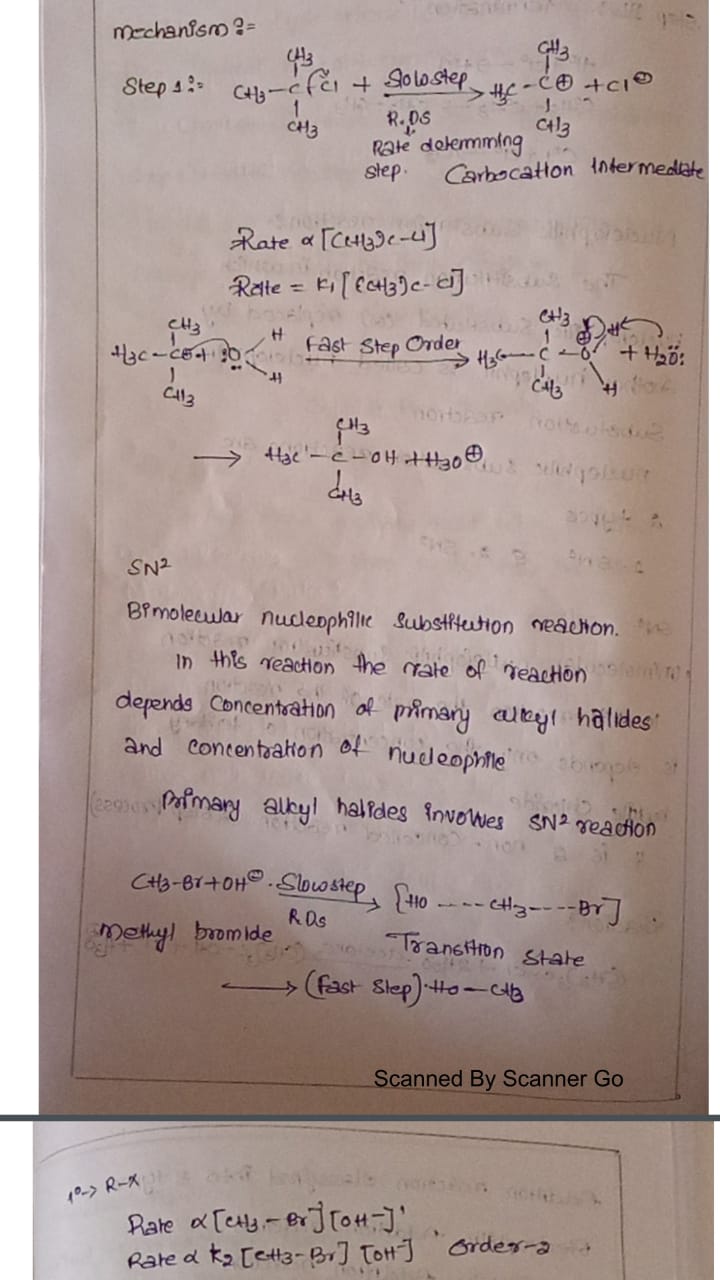 mechanism:-
CH3
CH3
Step 1:- CH3-C-Cl + Slow step → H3C-C⊕ + Cl⊖
CH3
R.DS
CH3
Rate determming
step. Carbocation Intermediate
Rate α [(CH3)3C-Cl]
Rate = K1 [(CH3)3C-Cl]
CH3
CH3
H3C-C⊕ + :O
H
H
Fast Step Order → H3C-C-O
⊕
H
H
+ H2O:
CH3
CH3
CH3
→ H3C-C-OH + H3O⊕
CH3
SN²
Bimolecular nucleophilic Substitution reaction.
In this reaction the rate of reaction
depends Concentration of primary alkyl halides
and concentration of nucleophile
Primary alkyl halides involves SN² reaction
CH3-Br+OH⊖ Slow step → [HO ---- CH3 ---- Br]
RDs
Methyl bromide
Transition State
⟶ (Fast Step) HO-CH3
Scanned By Scanner Go
1°-> R-X
Rate α [CH3-Br] [OH-]'
Rate α k2 [CH3-Br] [OH-] Order-2